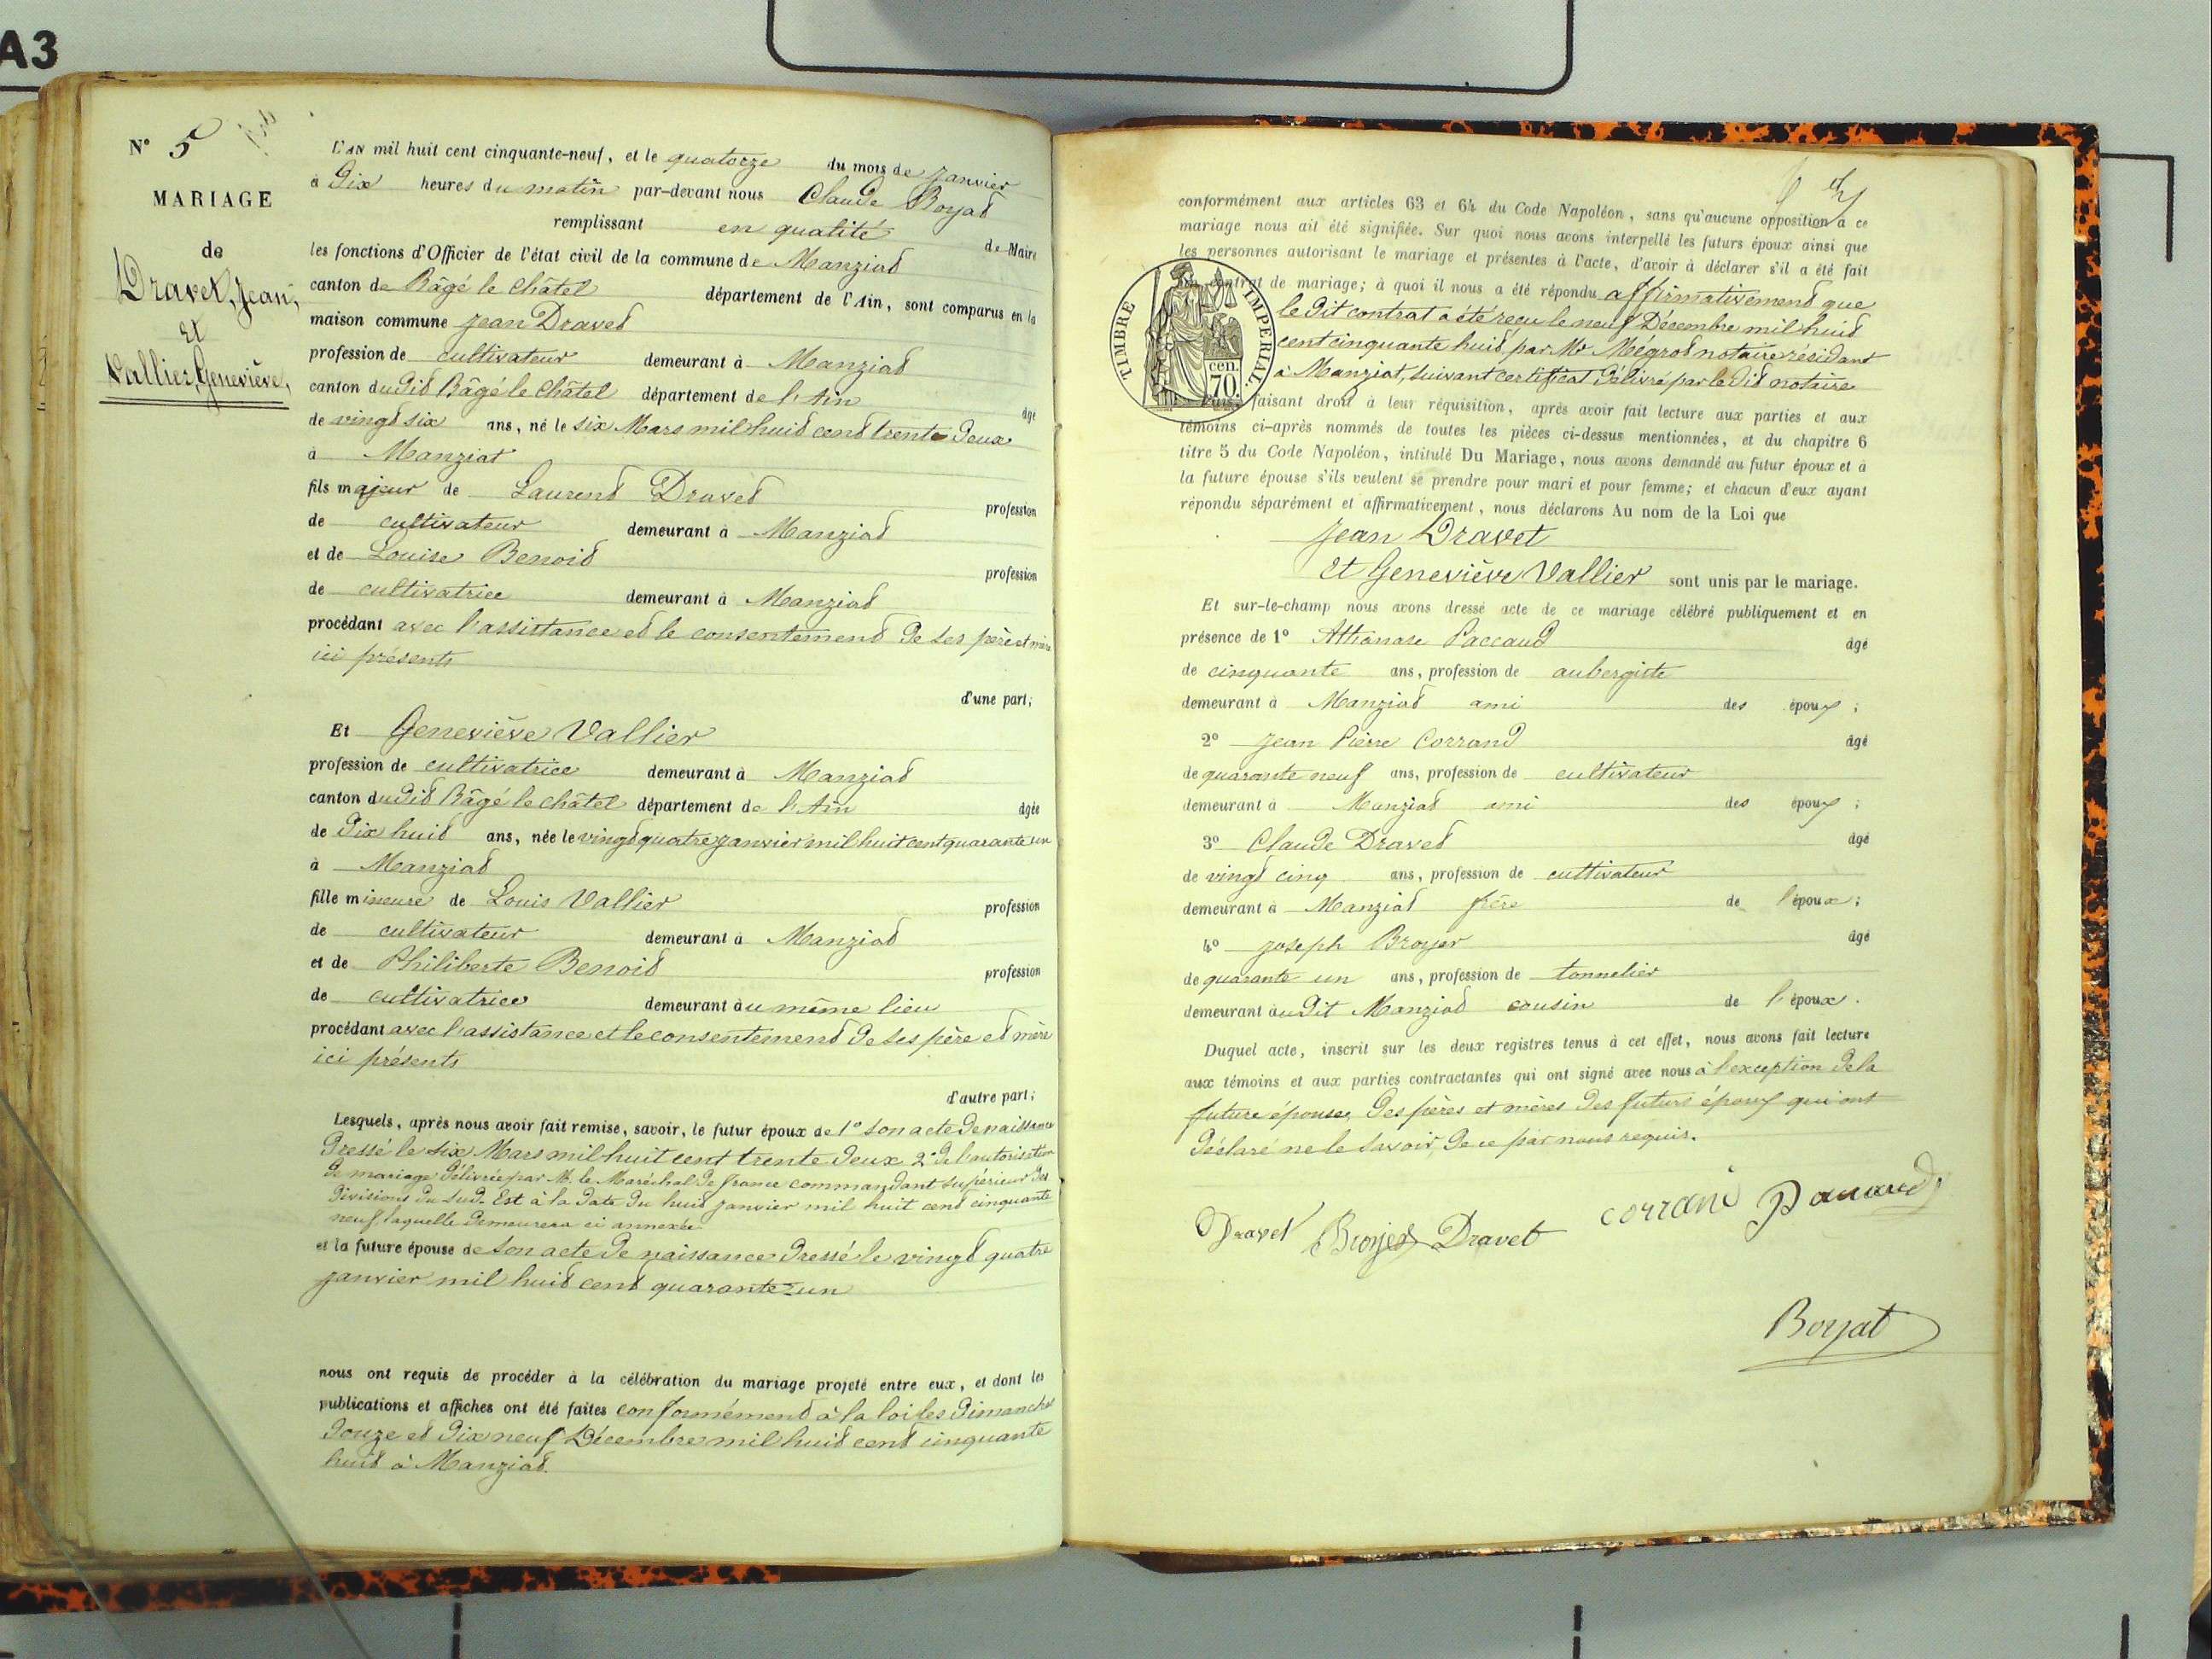 A3
N° 5
MARIAGE
de
Dravet, Jean,
Et
Vallier, Geneviève,
L'AN mil huit cent cinquante-neuf, et le quatorze du mois de janvier
à Dix heures du matin par-devant nous Claude Boyat
remplissant en qualité de Maire
les fonctions d'Officier de l'état civil de la commune de Manziat
canton de Bâgé le Châtel département de l'Ain, sont comparus en la
maison commune Jean Dravet
profession de cultivateur demeurant à Manziat
canton dudit Bâgé le Châtel département de l'Ain âgé
de vingt six ans, né le six Mars mil huit cent trente Deux
à Manziat
fils majeur de Laurent Dravet profession
de cultivateur demeurant à Manziat
et de Louise Benoit profession
de cultivatrice demeurant à Manziat
procédant avec l'assistance et le consentement de ses père et mère
ici présents
d'une part;
Et Geneviève Vallier
profession de cultivatrice demeurant à Manziat
canton dudit Bâgé le Châtel département de l'Ain âgée
de Dix huit ans, née le vingt quatre janvier mil huit cent quarante un
à Manziat
fille mineure de Louis Vallier profession
de cultivateur demeurant à Manziat
et de Philiberte Benoit profession
de cultivatrice demeurant au même lieu
procédant avec l'assistance et le consentement de ses père et mère
ici présents
d'autre part;
Lesquels, après nous avoir fait remise, savoir, le futur époux de 1° son acte de naissance
Dressé le six Mars mil huit cent trente Deux 2° de l'autorisation
de mariage Délivrée par M. le Maréchal de France commandant supérieur des
Divisions du Sud-Est à la Date du huit janvier mil huit cent cinquante
neuf, laquelle Demeurera ci annexée
et la future épouse de son acte de naissance Dressé le vingt quatre
janvier mil huit cent quarante-un
nous ont requis de procéder à la célébration du mariage projeté entre eux, et dont les
publications et affiches ont été faites conformément à la loi les Dimanches
Douze et Dix neuf Décembre mil huit cent cinquante
huit à Manziat.
conformément aux articles 63 et 64 du Code Napoléon, sans qu'aucune opposition à ce
mariage nous ait été signifiée. Sur quoi nous avons interpellé les futurs époux ainsi que
les personnes autorisant le mariage et présentes à l'acte, d'avoir à déclarer s'il a été fait
contrat de mariage; à quoi il nous a été répondu affirmativement que
le Dit contrat a été reçu le neuf Décembre mil huit
cent cinquante huit, par Me Mégrot notaire résidant
à Manziat, suivant certificat Délivré par le Dit notaire
TIMBRE IMPERIAL.
cen. 70.
Puis, faisant droit à leur réquisition, après avoir fait lecture aux parties et aux
témoins ci-après nommés de toutes les pièces ci-dessus mentionnées, et du chapitre 6
titre 5 du Code Napoléon, intitulé Du Mariage, nous avons demandé au futur époux et à
la future épouse s'ils veulent se prendre pour mari et pour femme; et chacun d'eux ayant
répondu séparément et affirmativement, nous déclarons Au nom de la Loi que
Jean Dravet
et Geneviève Vallier sont unis par le mariage.
Et sur-le-champ nous avons dressé acte de ce mariage célébré publiquement et en
présence de 1° Athanase Paccaud âgé
de cinquante ans, profession de aubergiste
demeurant à Manziat ami des époux;
2° Jean Pierre Corrand âgé
de quarante neuf ans, profession de cultivateur
demeurant à Manziat ami des époux;
3° Claude Dravet âgé
de vingt cinq ans, profession de cultivateur
demeurant à Manziat frère de l'époux;
4° Joseph Broyer âgé
de quarante un ans, profession de tonnelier
demeurant audit Manziat cousin de l'époux.
Duquel acte, inscrit sur les deux registres tenus à cet effet, nous avons fait lecture
aux témoins et aux parties contractantes qui ont signé avec nous à l'exception de la
future épouse, des pères et mères des futurs époux qui ont
Déclaré ne le savoir, de ce par nous requis.
Dravet Broyer Dravet corrand Paccaud
Boyat